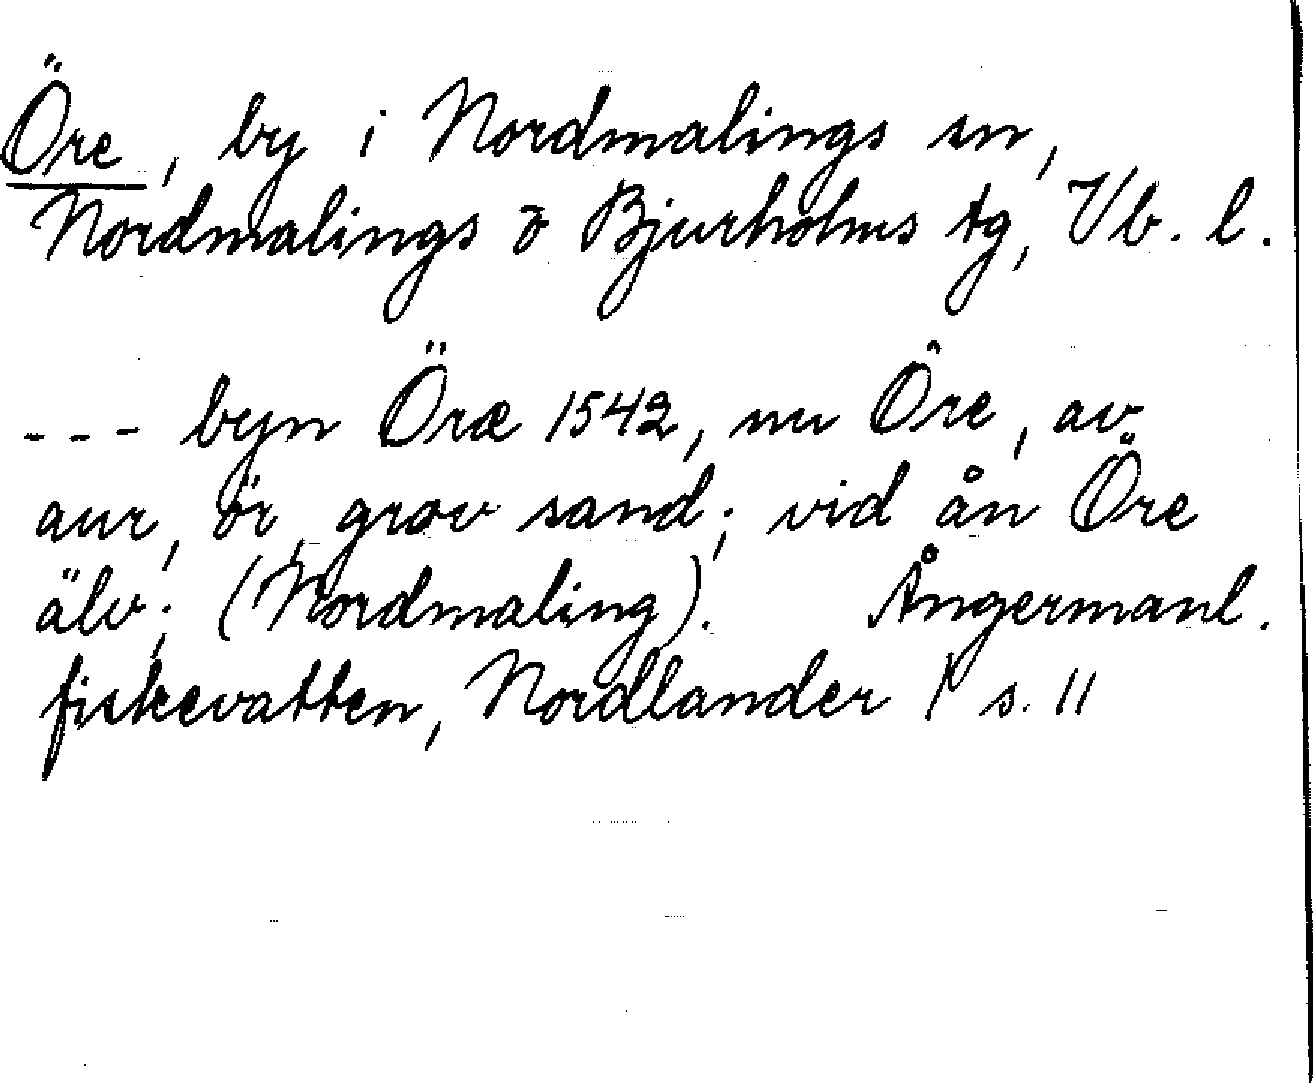 Öre, by i Nordmalings sn,
Nordmalings o Bjurholms tg, Vb. l.
--- byn Öræ 1542, nu Öre, av
aur, ör, grov sand; vid ån Öre
älv; (Nordmaling). Ångermanl.
fiskevatten, Nordlander I s. 11